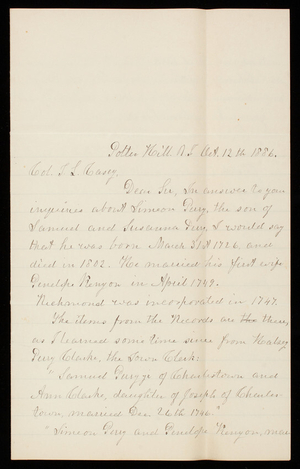 Potter Hill R.I. Oct. 12th 1886.
Col. T. L. Casey,
Dear Sir, In answer to your
inquiries about Simeon Perry, the son of
Samuel and Susanna Perry I would say
that he was born March 31st 1726, and
died in 1802. He married his first wife
Penelope Kenyon in April 1749.
Richmond was incorporated in 1747.
The items from the Records are these,
as I learned some time since from
Perry Clarke, the Town Clerk:
"Samuel Perry of Charlestown and
Ann Clarke, daughter of Joseph of Charles-
town, married Dec 26th 1746"
"Simeon Perry and Penelope Kenyon, mar-